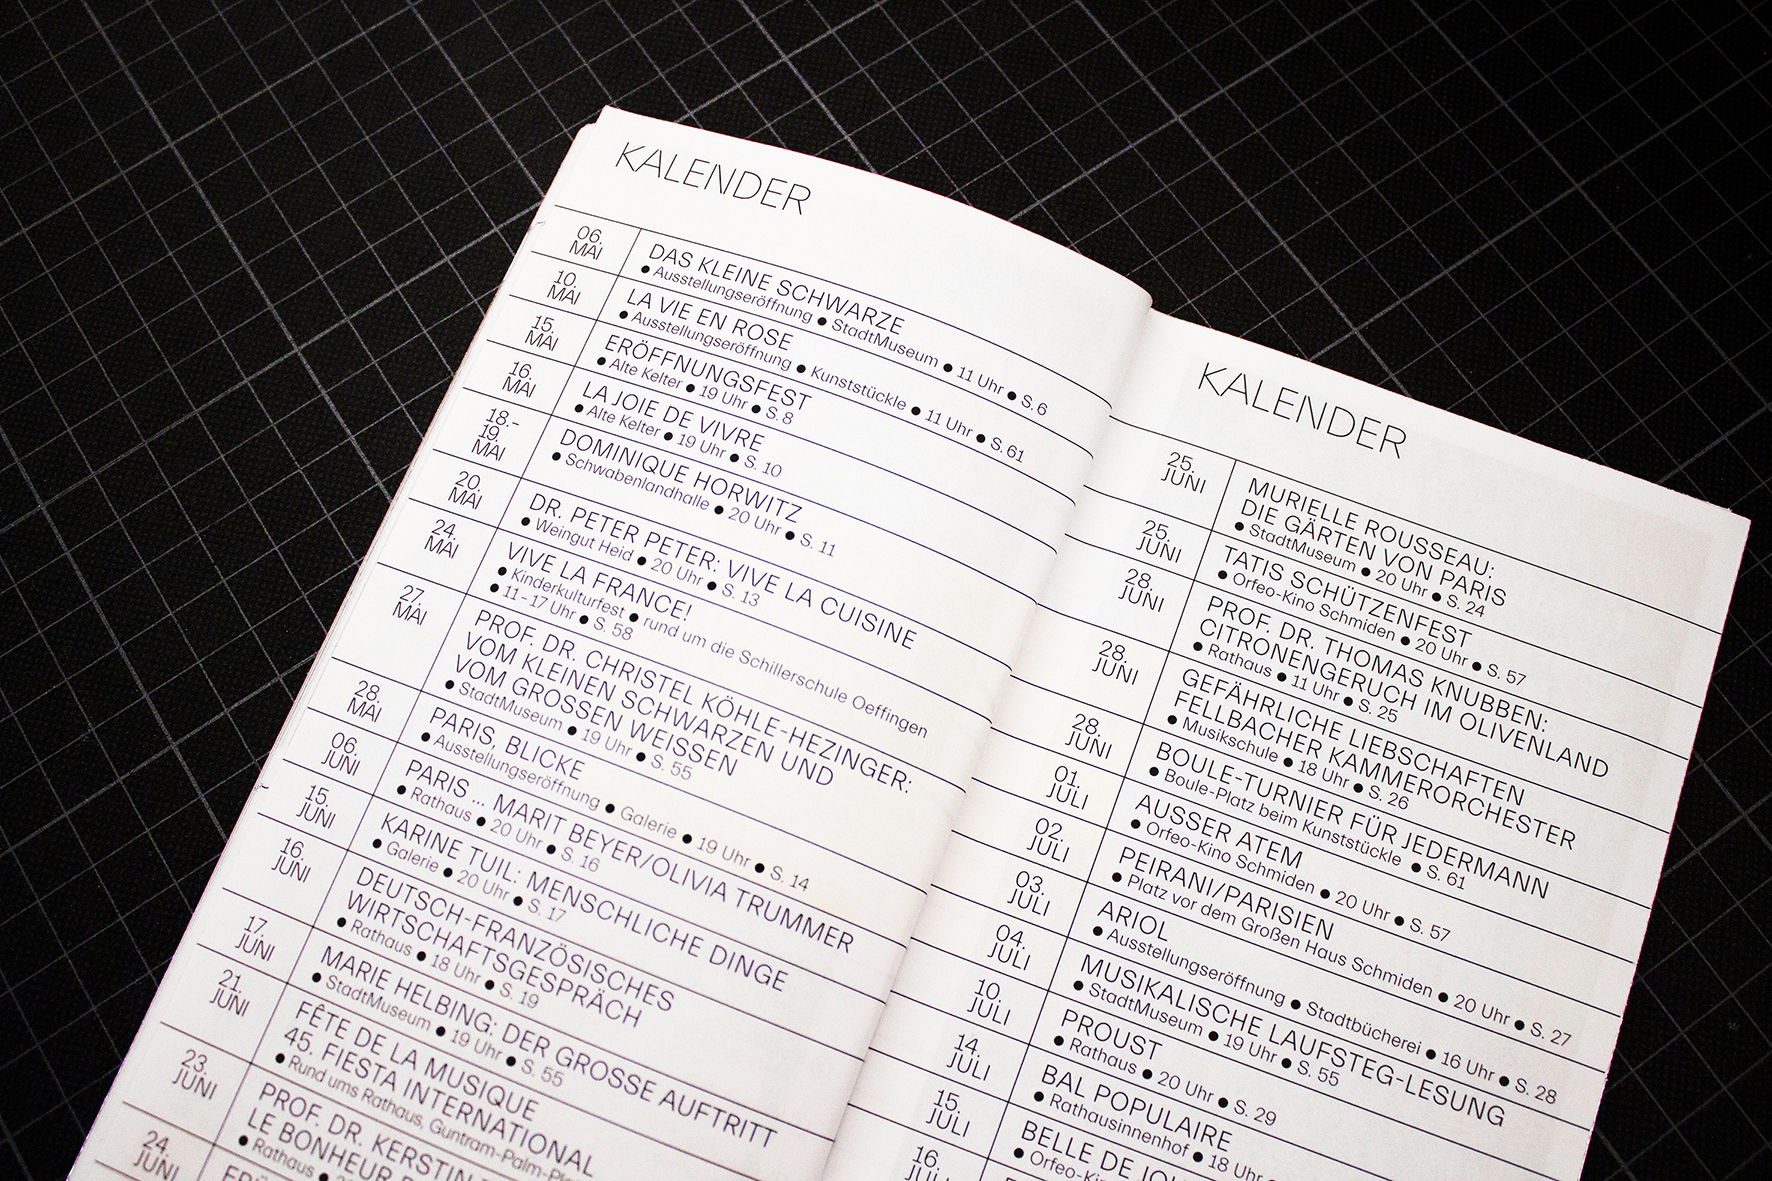 KALENDER
06.
MAI
DAS KLEINE SCHWARZE
● Ausstellungseröffnung ● StadtMuseum ● 11 Uhr ● S. 6
10.
MAI
LA VIE EN ROSE
● Ausstellungseröffnung ● Kunststückle ● 11 Uhr ● S. 61
15.
MAI
ERÖFFNUNGSFEST
● Alte Kelter ● 19 Uhr ● S. 8
16.
MAI
LA JOIE DE VIVRE
● Alte Kelter ● 19 Uhr ● S. 10
18.-
19.
MAI
DOMINIQUE HORWITZ
● Schwabenlandhalle ● 20 Uhr ● S. 11
20.
MAI
DR. PETER PETER: VIVE LA CUISINE
● Weingut Heid ● 20 Uhr ● S. 13
24.
MAI
VIVE LA FRANCE!
● Kinderkulturfest ● rund um die Schillerschule Oeffingen
● 11-17 Uhr ● S. 58
27.
MAI
PROF. DR. CHRISTEL KÖHLE-HEZINGER:
VOM KLEINEN SCHWARZEN UND
VOM GROSSEN WEISSEN
● StadtMuseum ● 19 Uhr ● S. 55
28.
MAI
PARIS, BLICKE
● Ausstellungseröffnung ● Galerie ● 19 Uhr ● S. 14
06.
JUNI
PARIS ... MARIT BEYER/OLIVIA TRUMMER
● Rathaus ● 20 Uhr ● S. 16
15.
JUNI
KARINE TUIL: MENSCHLICHE DINGE
● Galerie ● 20 Uhr ● S. 17
16.
JUNI
DEUTSCH-FRANZÖSISCHES
WIRTSCHAFTSGESPRÄCH
● Rathaus ● 18 Uhr ● S. 19
17.
JUNI
MARIE HELBING: DER GROSSE AUFTRITT
● StadtMuseum ● 19 Uhr ● S. 55
21.
JUNI
FÊTE DE LA MUSIQUE
45. FIESTA INTERNATIONAL
● Rund ums Rathaus, Guntram-Palm-Pl
23.
JUNI
PROF. DR. KERSTIN
LE BONHEUR
● Rathaus ●
24.
JUNI
KALENDER
25.
JUNI
MURIELLE ROUSSEAU:
DIE GÄRTEN VON PARIS
● StadtMuseum ● 20 Uhr ● S. 24
25.
JUNI
TATIS SCHÜTZENFEST
● Orfeo-Kino Schmiden ● 20 Uhr ● S. 57
28.
JUNI
PROF. DR. THOMAS KNUBBEN:
CITRONENGERUCH IM OLIVENLAND
● Rathaus ● 11 Uhr ● S. 25
28.
JUNI
GEFÄHRLICHE LIEBSCHAFTEN
FELLBACHER KAMMERORCHESTER
● Musikschule ● 18 Uhr ● S. 26
28.
JUNI
BOULE-TURNIER FÜR JEDERMANN
● Boule-Platz beim Kunststückle ● S. 61
01.
JULI
AUSSER ATEM
● Orfeo-Kino Schmiden ● 20 Uhr ● S. 57
02.
JULI
PEIRANI/PARISIEN
● Platz vor dem Großen Haus Schmiden ● 20 Uhr ● S. 27
03.
JULI
ARIOL
● Ausstellungseröffnung ● Stadtbücherei ● 16 Uhr ● S. 28
04.
JULI
MUSIKALISCHE LAUFSTEG-LESUNG
● StadtMuseum ● 19 Uhr ● S. 55
10.
JULI
PROUST
● Rathaus ● 20 Uhr ● S. 29
14.
JULI
BAL POPULAIRE
● Rathausinnenhof ● 18 Uhr
15.
JULI
BELLE DE JOU
● Orfeo-Ki
16.
JULI